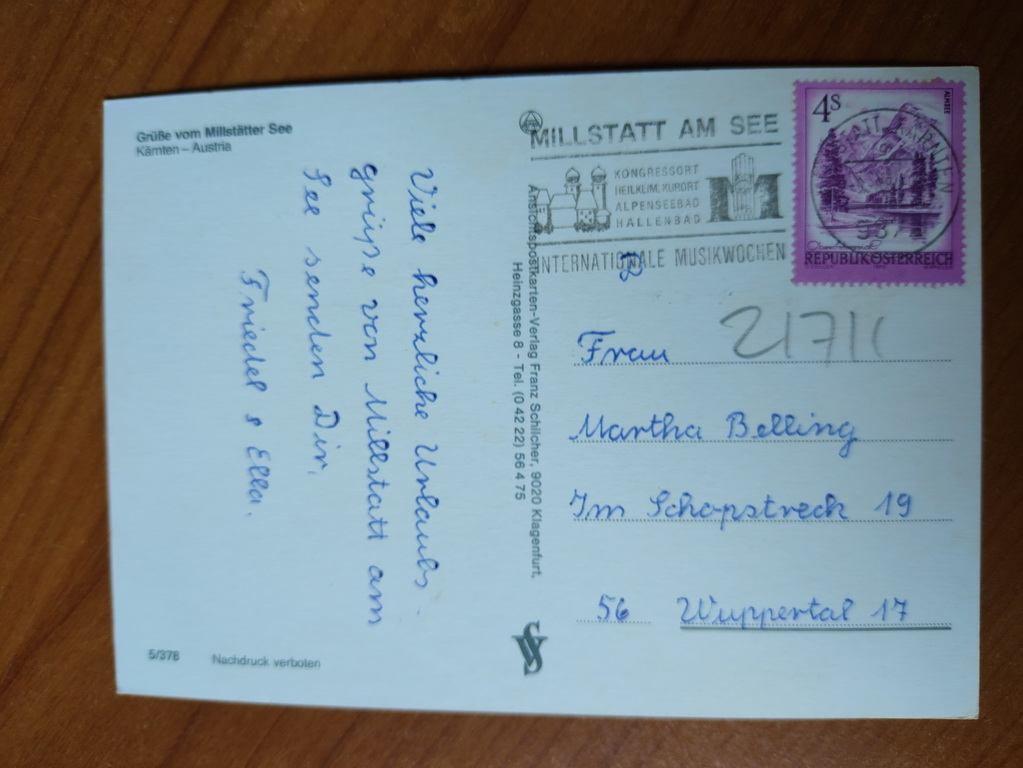 Grüße vom Millstätter See
Kärnten – Austria
Viele herzliche Urlaubs-
grüße von Millstatt am
See senden Dir,
Friedel & Ella.
5/378
Nachdruck verboten
Ansichtspostkarten-Verlag Franz Schilcher, 9020 Klagenfurt,
Heinzgasse 8 - Tel. (0 42 22) 56 4 75
MILLSTATT AM SEE
KONGRESSORT
HEILKLIM. KURORT
ALPENSEEBAD
HALLENBAD
M
INTERNATIONALE MUSIKWOCHEN
4S
ALMSEE
REPUBLIK ÖSTERREICH
Frau
Martha Belling
Im Schopstreck 19
56 Wuppertal 17